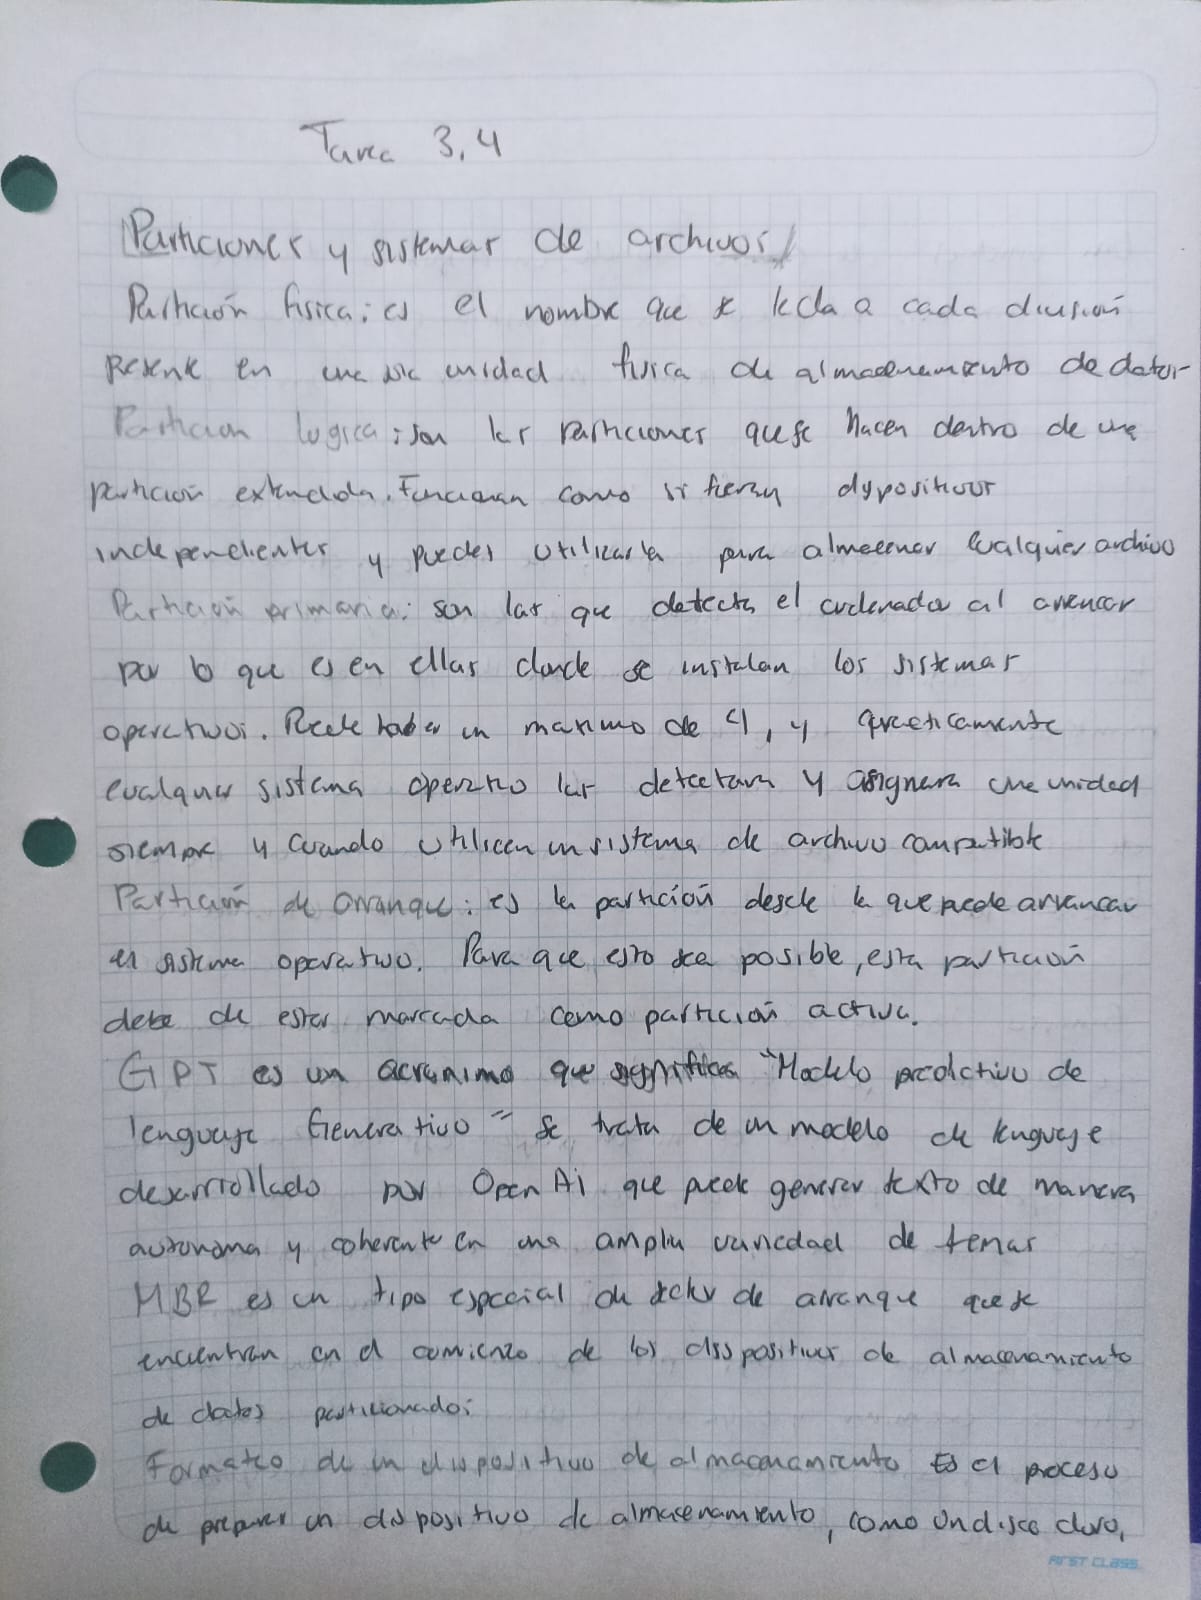 Tarea 3,4
Particiones y sistemas de archivos
Partición fisica: es el nombre que se le da a cada división
presente en una sola unidad fisica de almacenamiento de datos
Particion logica: son las particiones que se hacen dentro de una
partición extendida. Funcionan como si fueran dispositivos
independientes y puedes utilizarla para almacenar cualquier archivo
Partición primaria: son las que detecta el ordenador al arrancar
por lo que es en ellas donde se instalan los sistemas
operativos. Puede haber un maximo de 4, y practicamente
cualquier sistema operativo las detectara y asignara una unidad
siempre y cuando utilicen un sistema de archivo compatible
Partición de arranque: es la partición desde la que puede arrancar
el sistema operativo. Para que esto sea posible, esta partición
debe de estar marcada como partición activa.
GPT es un acronimo que significa "Modelo predictivo de
lenguaje Generativo" se trata de un modelo de lenguaje
desarrollado por Open Ai que puede generar texto de manera
autonoma y coherente en una amplia variedad de temas
MBR es un tipo especial de sector de arranque que se
encuentran en el comienzo de los disspositivos de almacenamiento
de datos particionados
Formateo de un dispositivo de almacenamiento Es el proceso
de preparar un dispositivo de almacenamiento, como un disco duro,
FIRST CLASS